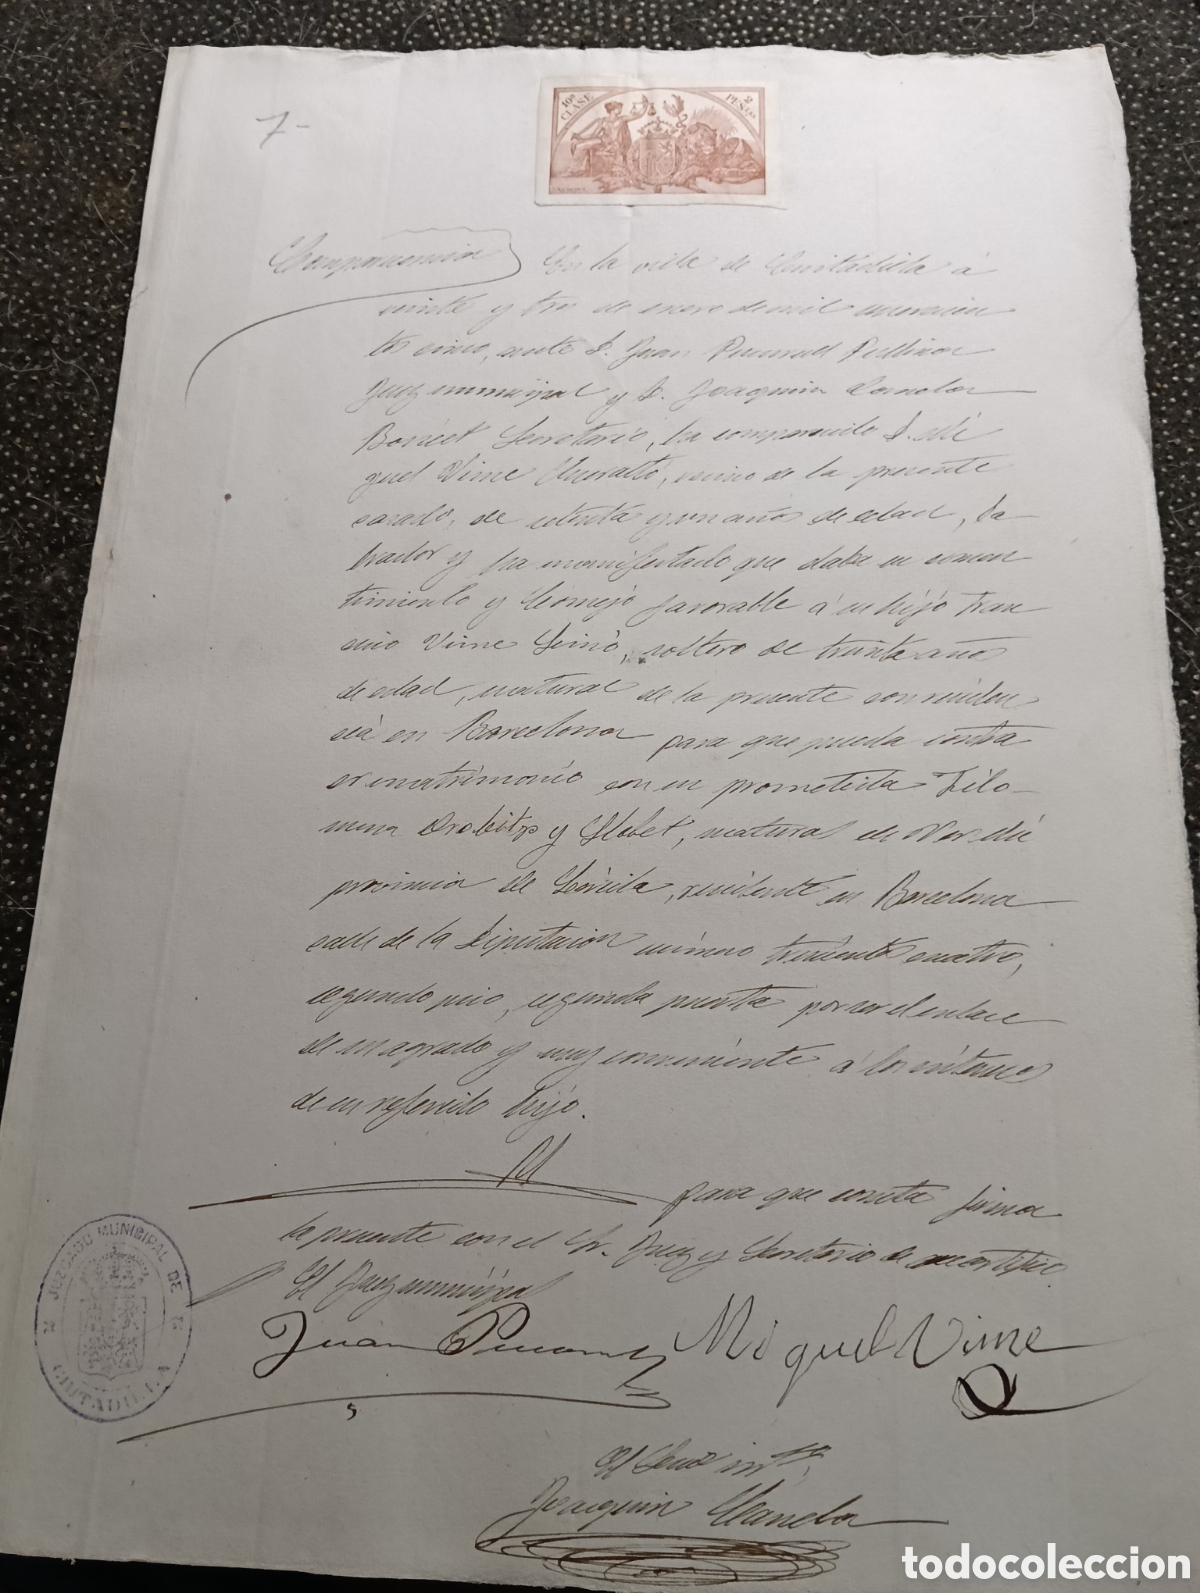 7-
10ª CLASE 2 PESTAS
Comparecencia En la villa de Ciutadilla á
veinte y tres de enero de mil novecien
tos cinco, ante D. Juan
Juez municipal y D. Joaquin
Bonet Secretario, ha comparecido D. Mi
guel Vime, vecino de la presente
casado, de setenta y un años de edad, la
brador y ha manifestado que daba su consen
timiento y Consejo favorable á su hijo Fran
cisco Vime, soltero de treinta años
de edad, natural de la presente con residen
cia en Barcelona para que pueda contra
er matrimonio con su prometida Filo-
mena y Llobet, natural de Verdú
provincia de Lérida, residente en Barcelona
calle de la Diputacion número trescientos cuatro,
segundo piso, segunda puerta por ser el enlace
de su agrado y muy conveniente á los intereses
de su referido hijo.
para que conste firma
la presente con el Sr. Juez y Secretario de que certifico.
El Juez municipal
Juan Miguel Vime
El Secrio intº,
Joaquin
JUZGADO MUNICIPAL DE
CIUTADILLA
todocoleccion.net